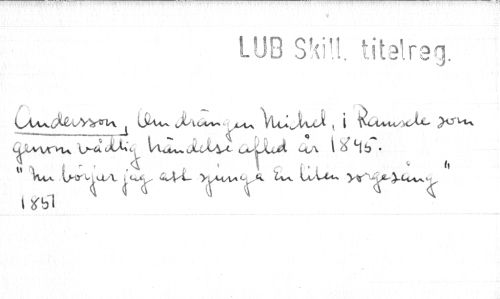 LUB Skill. titelreg.
Andersson, Om drängen Michel, i Ramsele som
genom vådlig händelse afled år 1845.
"Nu börjar jag att sjunga En liten sorgesång"
1851